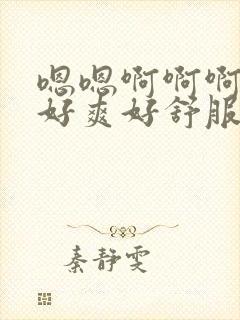 嗯嗯啊啊啊
好爽好舒服
秦静雯